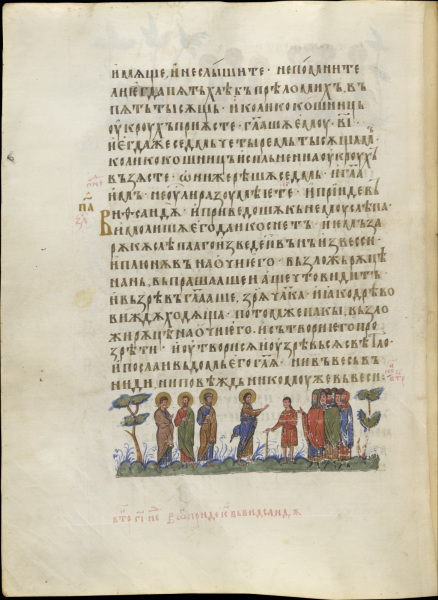 имѧще, и неслꙑшите · непомните
ли · егда пѧть хлѣбъ прѣломихъ, въ
пѧть тꙑсѧщь · и колико кошницъ
оукроухъ приѧсте · глашѧ емоу · в҃і ·
и егда же седмь четꙑремъ тꙑсѧщамъ ·
колико кошницъ исплънена оукроухъ
възѧсте · ѡни же рѣшѧ седмь · и гла
имъ · не оу ли разоумѣете · и прїиде въ
виѳсаидѫ · и приведошѧ къ немоу слѣпа ·
и молишѧ его да и коснетъ · и емъ за
рѫкѫ слѣпаго изведе и вънъ из веси ·
и плюнѫвъ на очи его · възложь рѫцѣ
на нь, въпрашааше и аще что видитъ ·
и възрѣвъ глааше, зрѧ чл҃кꙑ · ꙗко дрѣво
виждѫ ходѧща · потомже пакꙑ възло
жи рѫцѣ на очи его · и сътвори его про
зрѣти · и оутвори сѧ и оузрѣ всѧ свѣтло ·
и посла и въ домь его глѧ · ни въ весь въ
ниди, ни повѣждь никомоу же въ веси ·